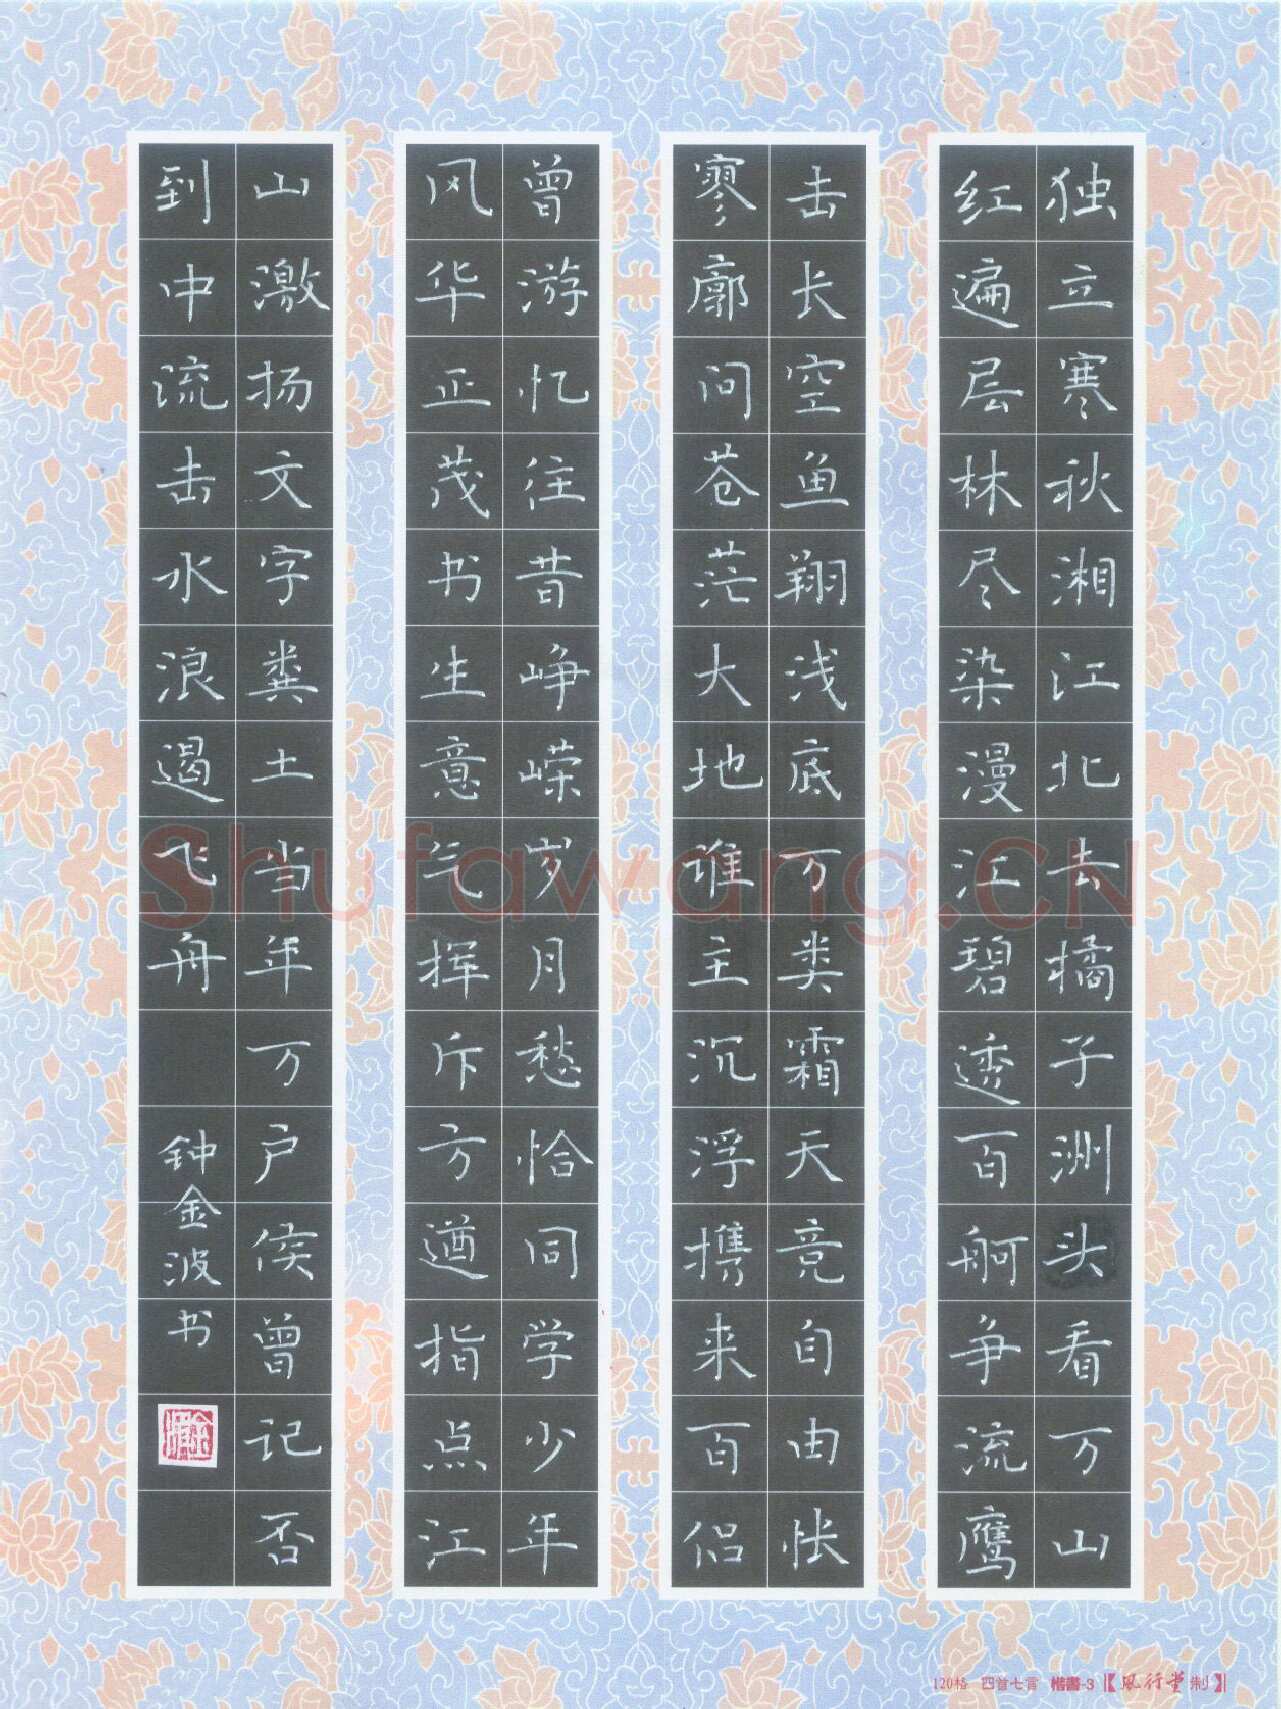 独立寒秋湘江北去橘子洲头看万山
红遍层林尽染漫江碧透百舸争流鹰
击长空鱼翔浅底万类霜天竞自由怅
寥廓问苍茫大地谁主沉浮携来百侣
曾游忆往昔峥嵘岁月愁恰同学少年
风华正茂书生意气挥斥方遒指点江
山激扬文字粪土当年万户侯曾记否
到中流击水浪遏飞舟
钟金波书
Shufawang.CN
120格 四首七言 楷書-3【風行堂制】